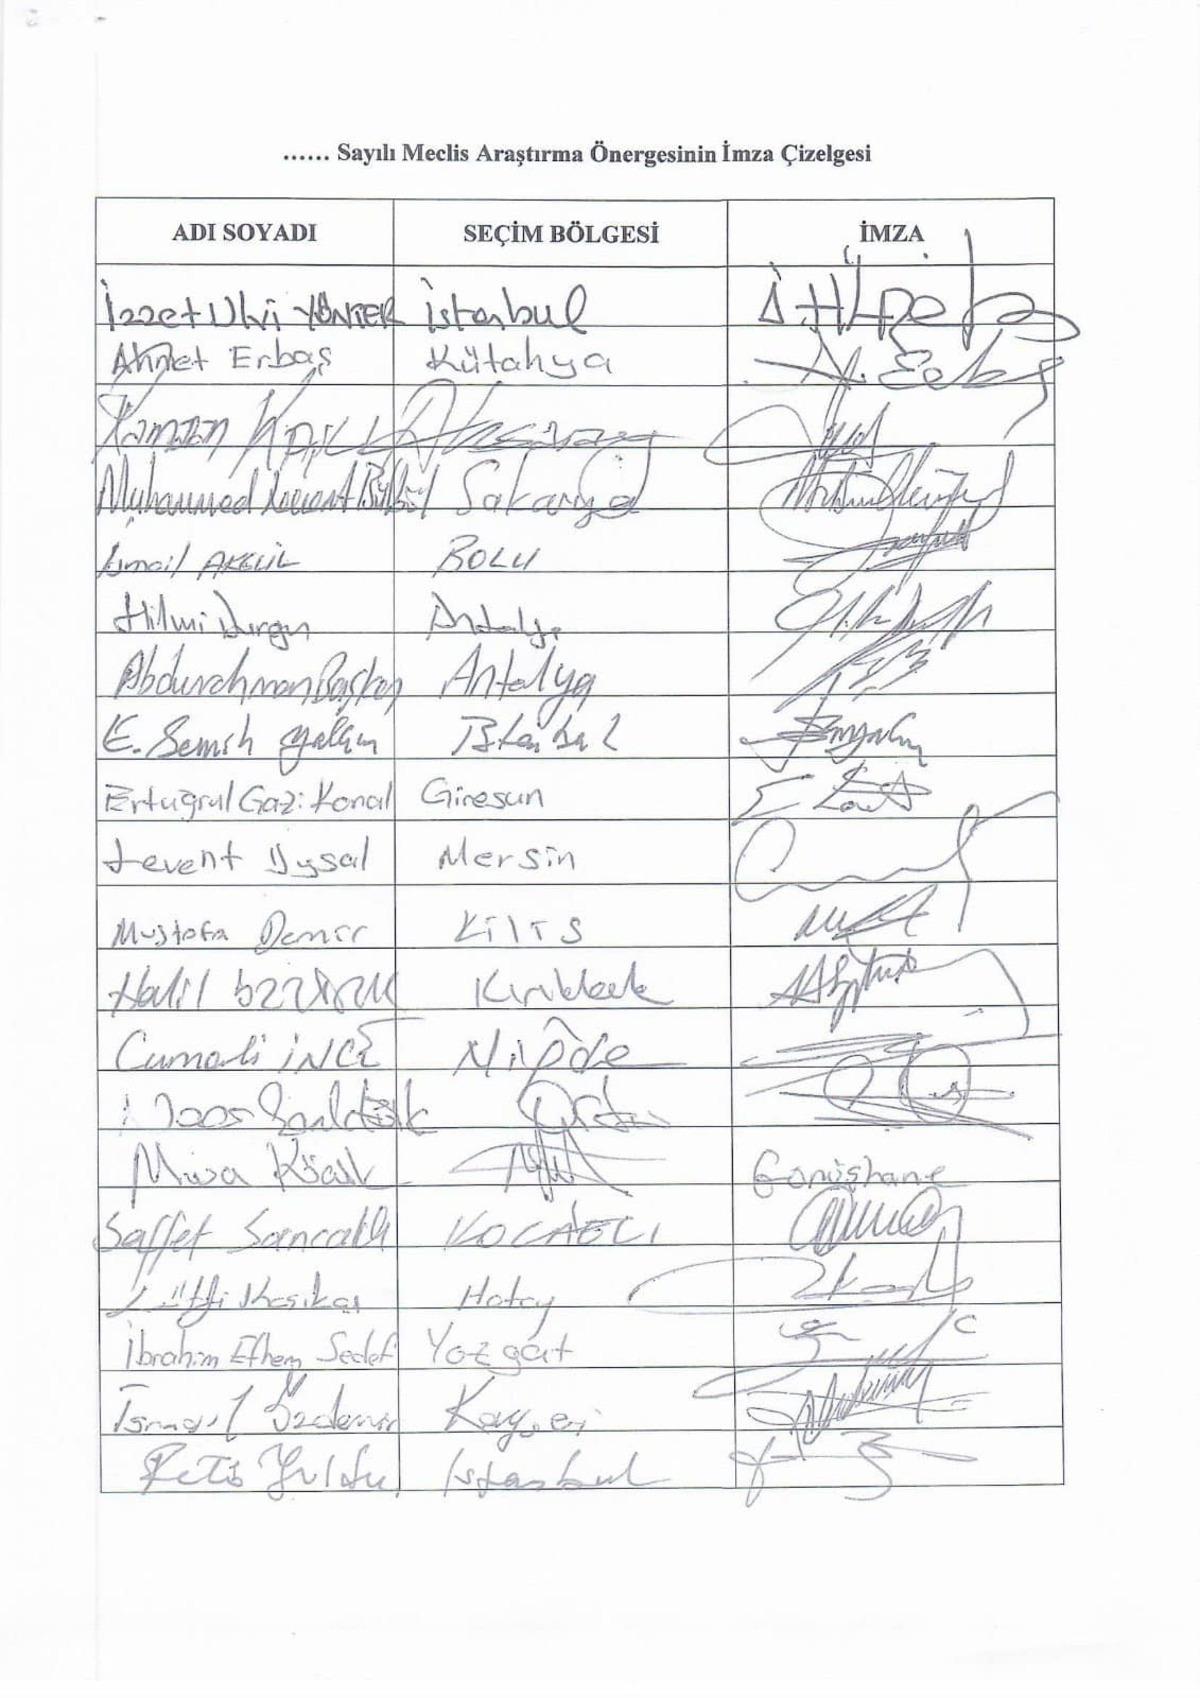 ...... Sayılı Meclis Araştırma Önergesinin İmza Çizelgesi
ADI SOYADI SEÇİM BÖLGESİ İMZA
İzzet Ulvi YÖNTER İstanbul
Ahmet Erbaş Kütahya
Ramazan Kaşlı Aksaray
Muhammed Levent Bülbül Sakarya
İsmail AKGÜL BOLU
Hilmi Durgun Antalya
Abdurrahman Başkan Antalya
E. Semih Yalçın İstanbul
Ertuğrul Gazi Konal Giresun
Levent Uysal Mersin
Mustafa Demir KİLİS
Halil ÖZTÜRK Kırıkkale
Cumali İNCE Niğde
Ordu
Musa Küçük Gümüşhane
Saffet Sancaklı KOCAELİ
Lütfi Kaşıkçı Hatay
İbrahim Ethem Sedef Yozgat
İsmail Özdemir Kayseri
Feti Yıldız İstanbul